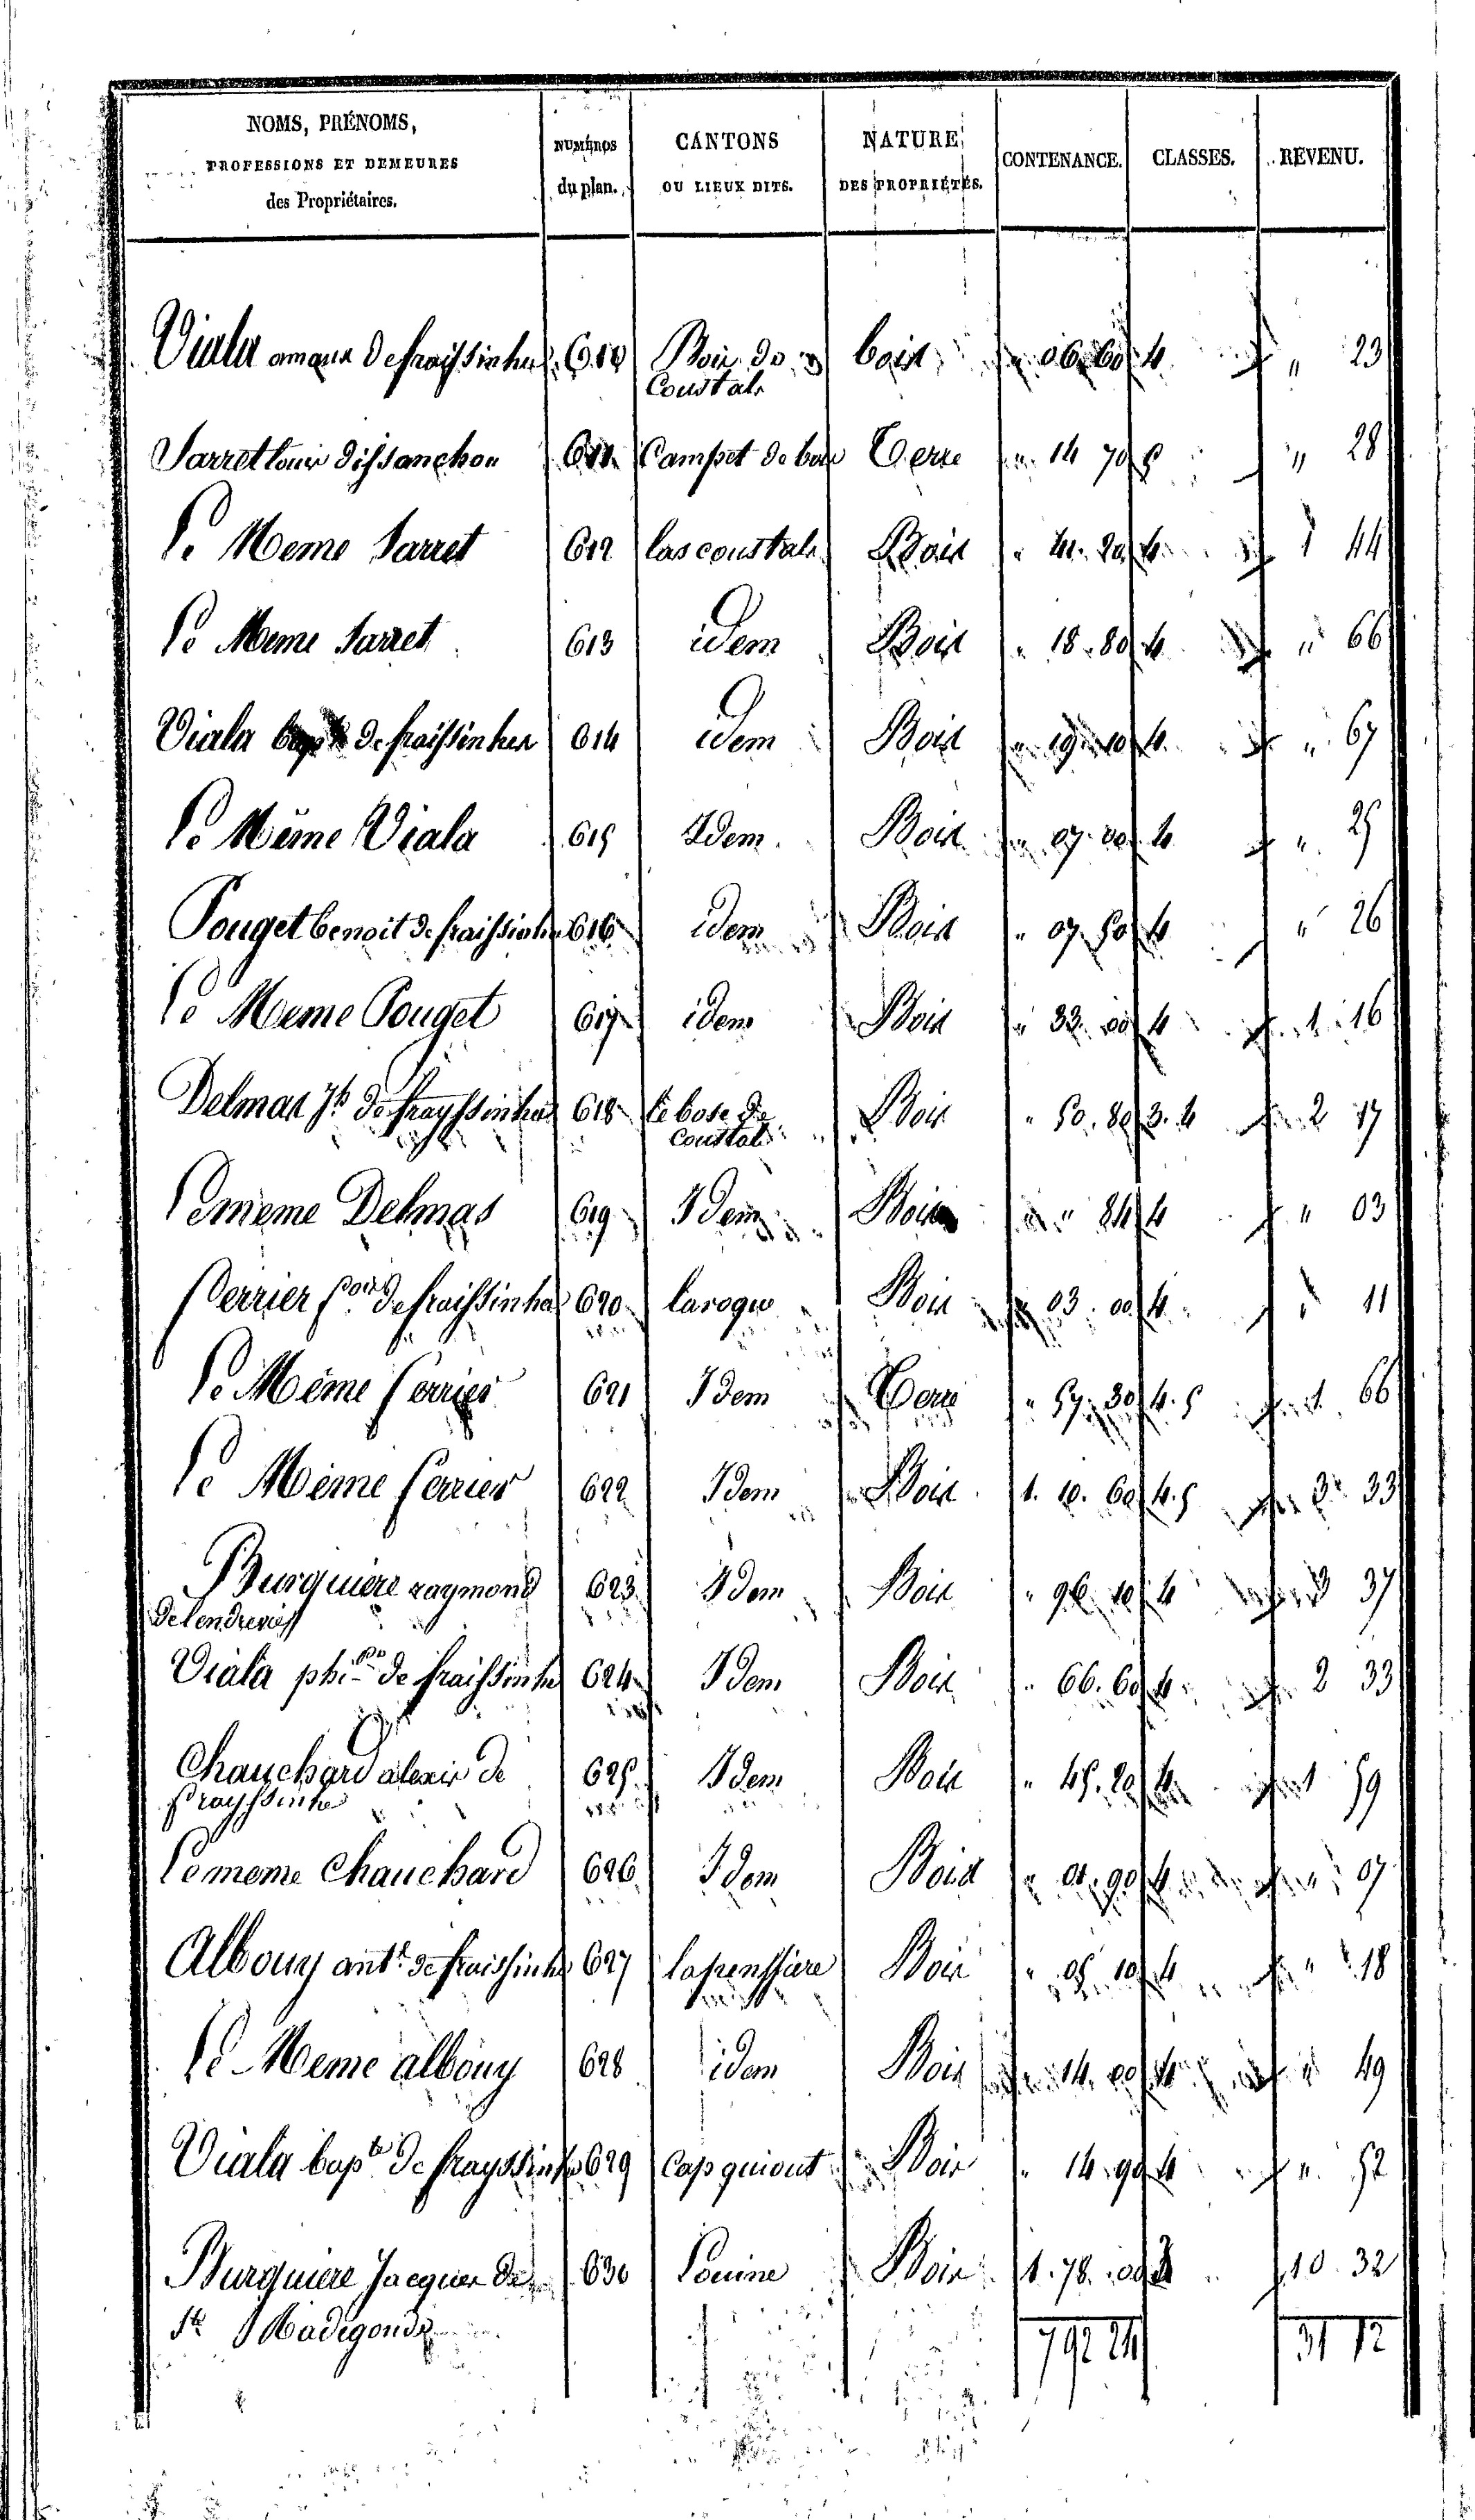 NOMS, PRÉNOMS, PROFESSIONS ET DEMEURES des Propriétaires. NUMÉROS du plan. CANTONS OU LIEUX DITS. NATURE DES PROPRIÉTÉS. CONTENANCE. CLASSES. REVENU.
Viala amans de fraissinhes 610 Bois de Coustals bois " 06. 60 4 " 23
Sarret louis dissanchou 611 Campet de bou Terre " 14 70 5 " 28
Le Meme Sarret 612 las coustals Bois " 41. 20 4 1 44
Le Meme Sarret 613 idem Bois " 18. 80 4 " 66
Viala bapte de fraissinhes 614 idem Bois " 19. 10 4 " 67
Le Même Viala 615 Idem Bois " 07. 00 4 " 25
Pouget benoit de fraissinhes 616 idem Bois " 07. 50 4 " 26
Le Meme Pouget 617 idem Bois " 33. 00 4 1. 16
Delmas Jh de frayssinhes 618 le bosc de Coustals Bois " 50. 80 3. 4 2 17
Le meme Delmas 619 Idem Bois " " 84 4 " 03
Perrier fois de fraissinhes 620 laroque Bois " 03. 00 4 " 11
Le Même Perrier 621 Idem Terre " 57. 30 4. 5 1 66
Le Même Perrier 622 Idem Bois 1. 10. 60 4. 5 3 33
Burguiere raymond 623 Idem Bois " 96. 10 4 3 37
de lendrevies
Viala phipe de fraissinhes 624 Idem Bois " 66. 60 4 2 33
Chauchard alexis de 625 Idem Bois " 45. 20 4 1 59
frayssinhes
Le meme Chauchard 626 Idem Bois " 01. 90 4 " 07
Albouy ant.e de fraissinhes 627 lapenssiere Bois " 05 10 4 " 18
Le Meme albouy 628 idem Bois " 14. 00 4 " 49
Viala bapte de frayssinhes 629 Cap quiout Bois " 14. 90 4 " 52
Burguiere Jacques de 630 Bois 1. 78. 00 10 32
Ste Radegonde
7 92 24 31 72